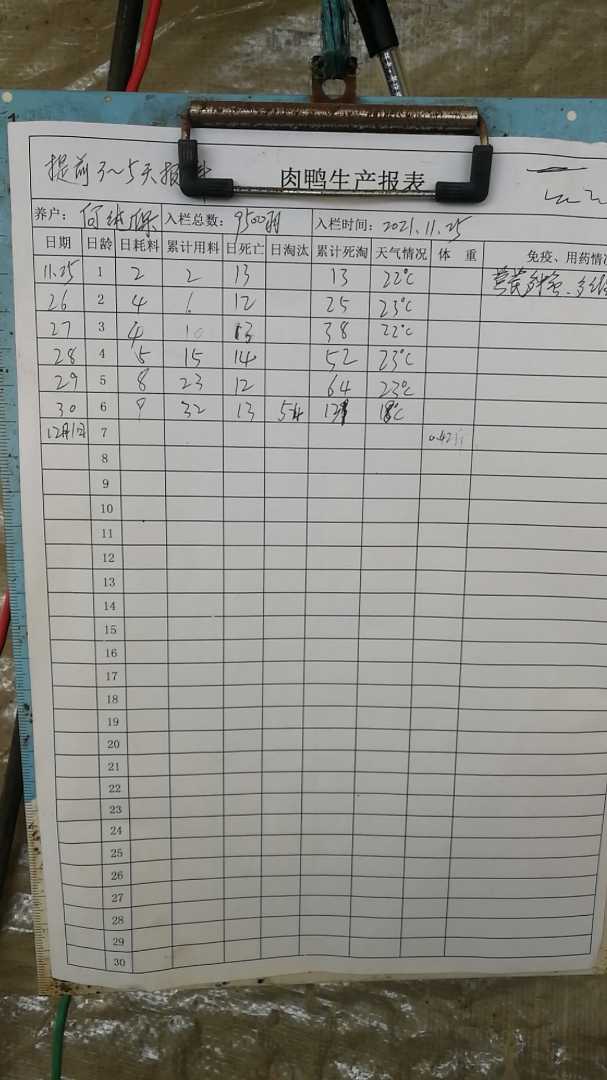 提前3~5天报
肉鸭生产报表
养户: 何 保 入栏总数: 9500羽 入栏时间: 2021.11.25
日期 日龄 日耗料 累计用料 日死亡 日淘汰 累计死淘 天气情况 体 重 免疫、用药情
11.25 1 2 2 13 13 22℃
26 2 4 12 25 23℃
27 3 4 10 13 38 22℃
28 4 5 15 14 52 23℃
29 5 8 23 12 64 23℃
30 6 9 32 13 54 18℃
12月1日 7
8
9
10
11
12
13
14
15
16
17
18
19
20
21
22
23
24
25
26
27
28
29
30